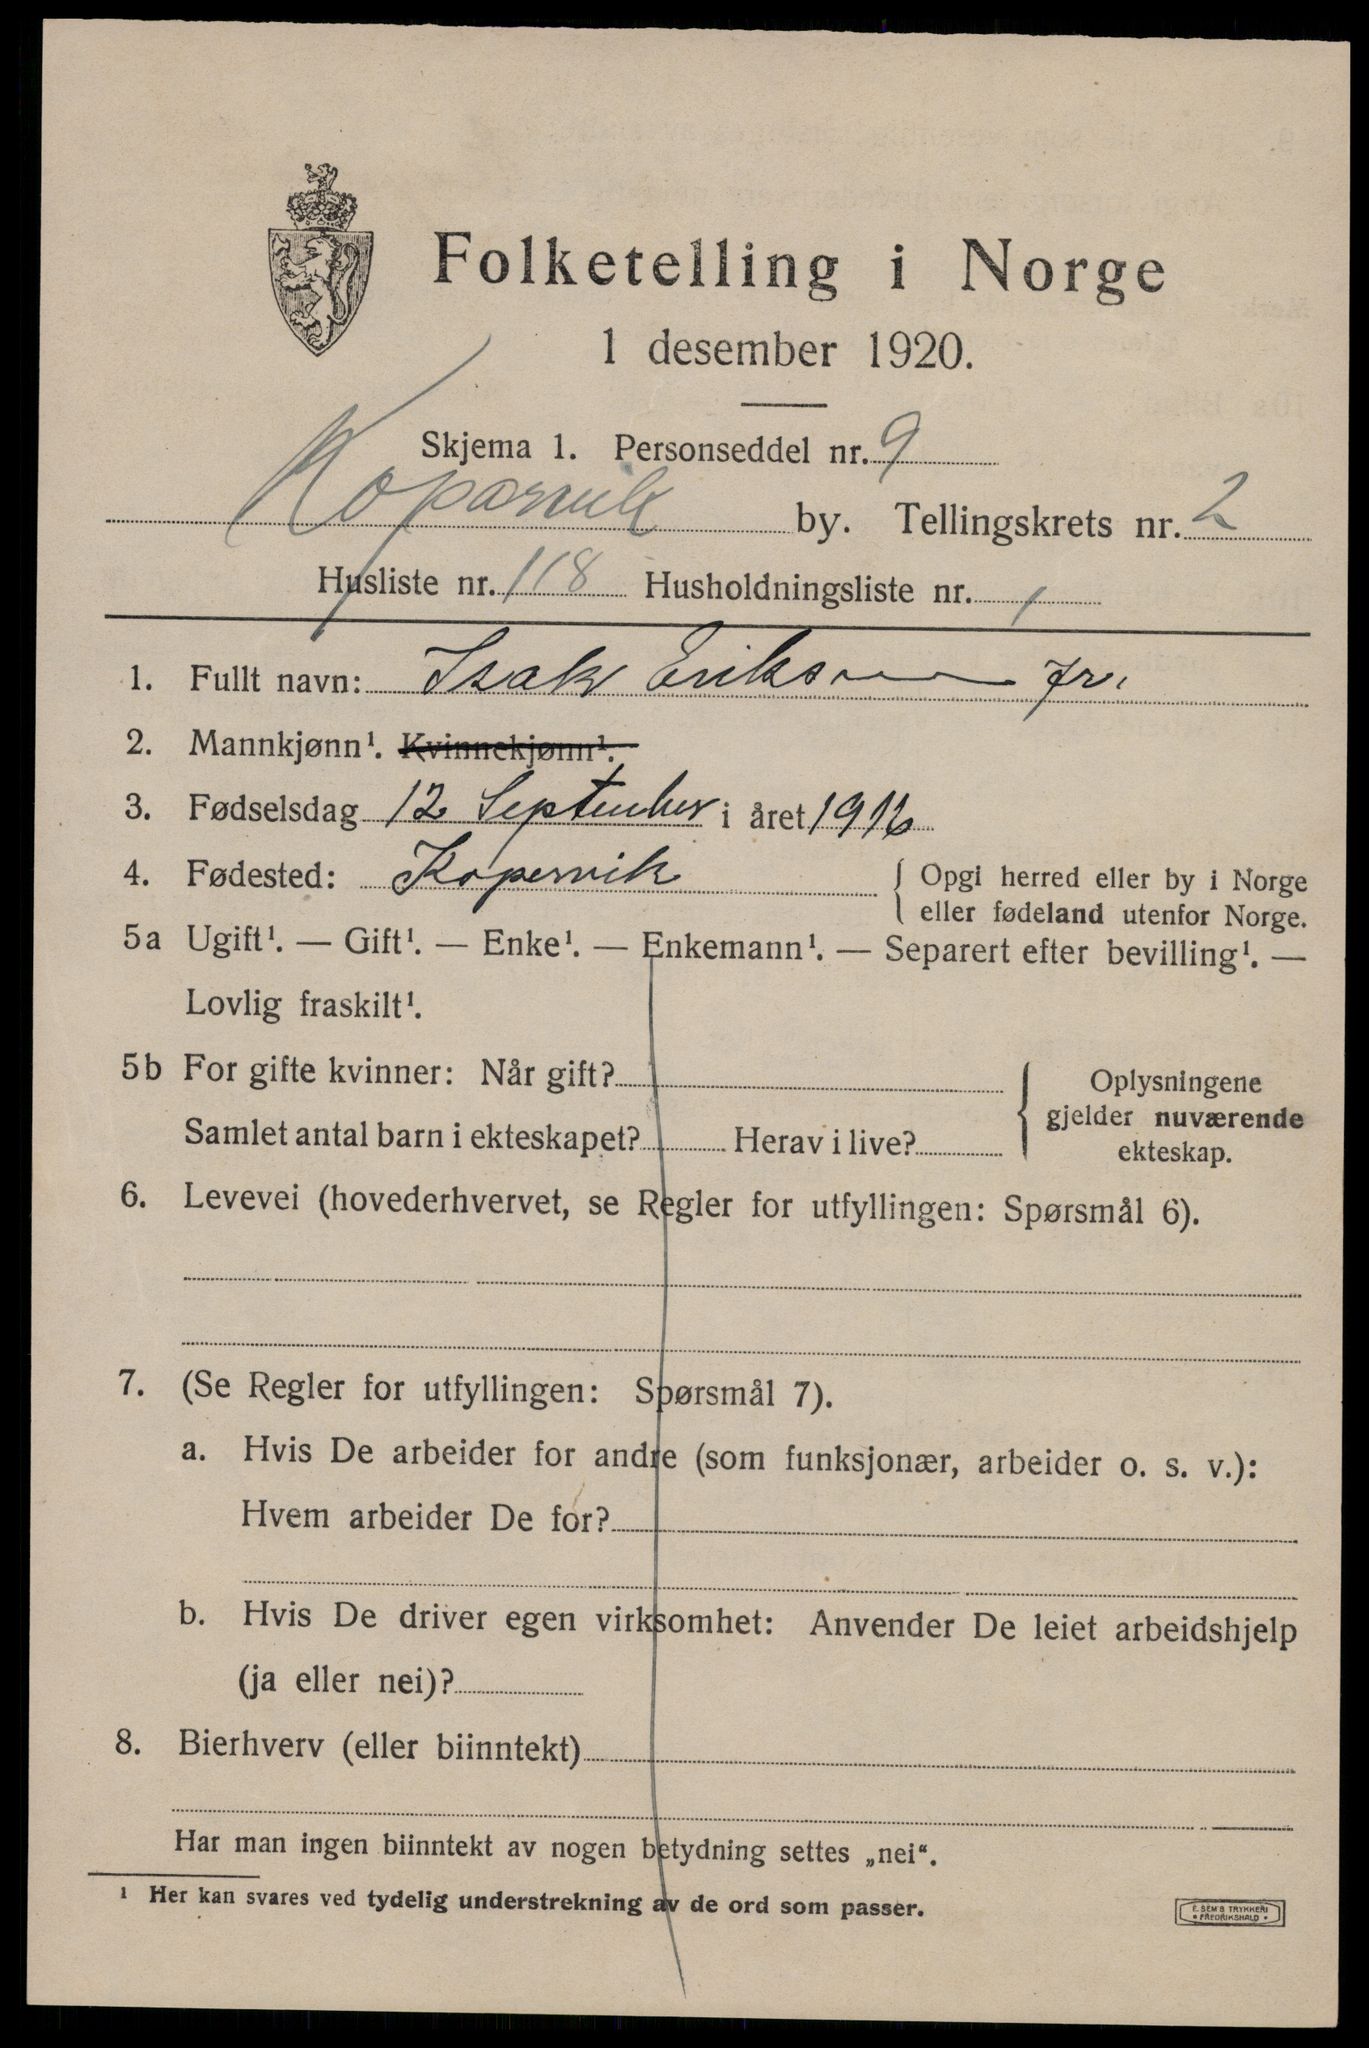 Folketelling i Norge
1 desember 1920.
Skjema 1. Personseddel nr. 9
Kopervik by. Tellingskrets nr. 2
Husliste nr. 118 Husholdningsliste nr. 1
1. Fullt navn: Isak Eriksen jr.
2. Mannkjønn¹. Kvinnekjønn¹.
3. Fødselsdag 12 September i året 1916
4. Fødested: Kopervik { Opgi herred eller by i Norge
eller fødeland utenfor Norge.
5a Ugift¹. — Gift¹. — Enke¹. — Enkemann¹. — Separert efter bevilling¹. —
Lovlig fraskilt¹.
5b For gifte kvinner: Når gift? { Oplysningene
gjelder nuværende
Samlet antal barn i ekteskapet? Herav i live? ekteskap.
6. Levevei (hovederhvervet, se Regler for utfyllingen: Spørsmål 6).
7. (Se Regler for utfyllingen: Spørsmål 7).
a. Hvis De arbeider for andre (som funksjonær, arbeider o. s. v.):
Hvem arbeider De for?
b. Hvis De driver egen virksomhet: Anvender De leiet arbeidshjelp
(ja eller nei)?
8. Bierhverv (eller biinntekt)
Har man ingen biinntekt av nogen betydning settes „nei“.
¹ Her kan svares ved tydelig understrekning av de ord som passer.
E. SEM'S TRYKKERI
• FREDRIKSHALD •